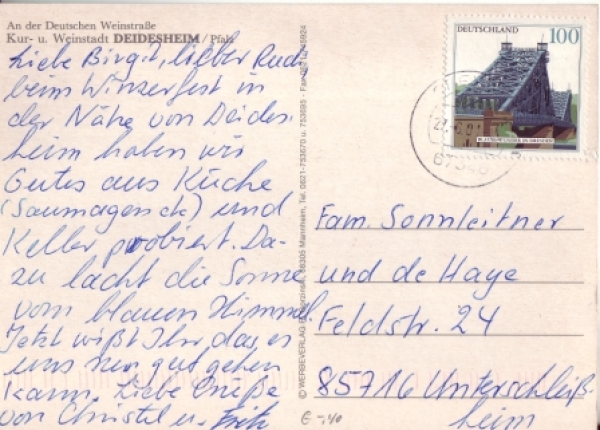 An der Deutschen Weinstraße
Kur- u. Weinstadt DEIDESHEIM/Pfalz
Liebe Birgit, lieber Rudi,
beim Winzerfest in
der Nähe von Deides-
heim haben wir
Gutes aus Küche
(Saumagen etc) und
Keller probiert. Da-
zu lacht die Sonne
vom blauen Himmel.
Jetzt wißt Ihr, das es
uns nur gut gehen
kann. Liebe Grüße
von Christel u. Fritz
© WERBEVERLAG 68305 Mannheim, Tel. 0621-753670 u. 753695 - Fax
DEUTSCHLAND 100
BLAUES WUNDER IN DRESDEN
Fam. Sonnleitner
und de Haye
Feldstr. 24
85716 Unterschleiß-
heim
€ -,40